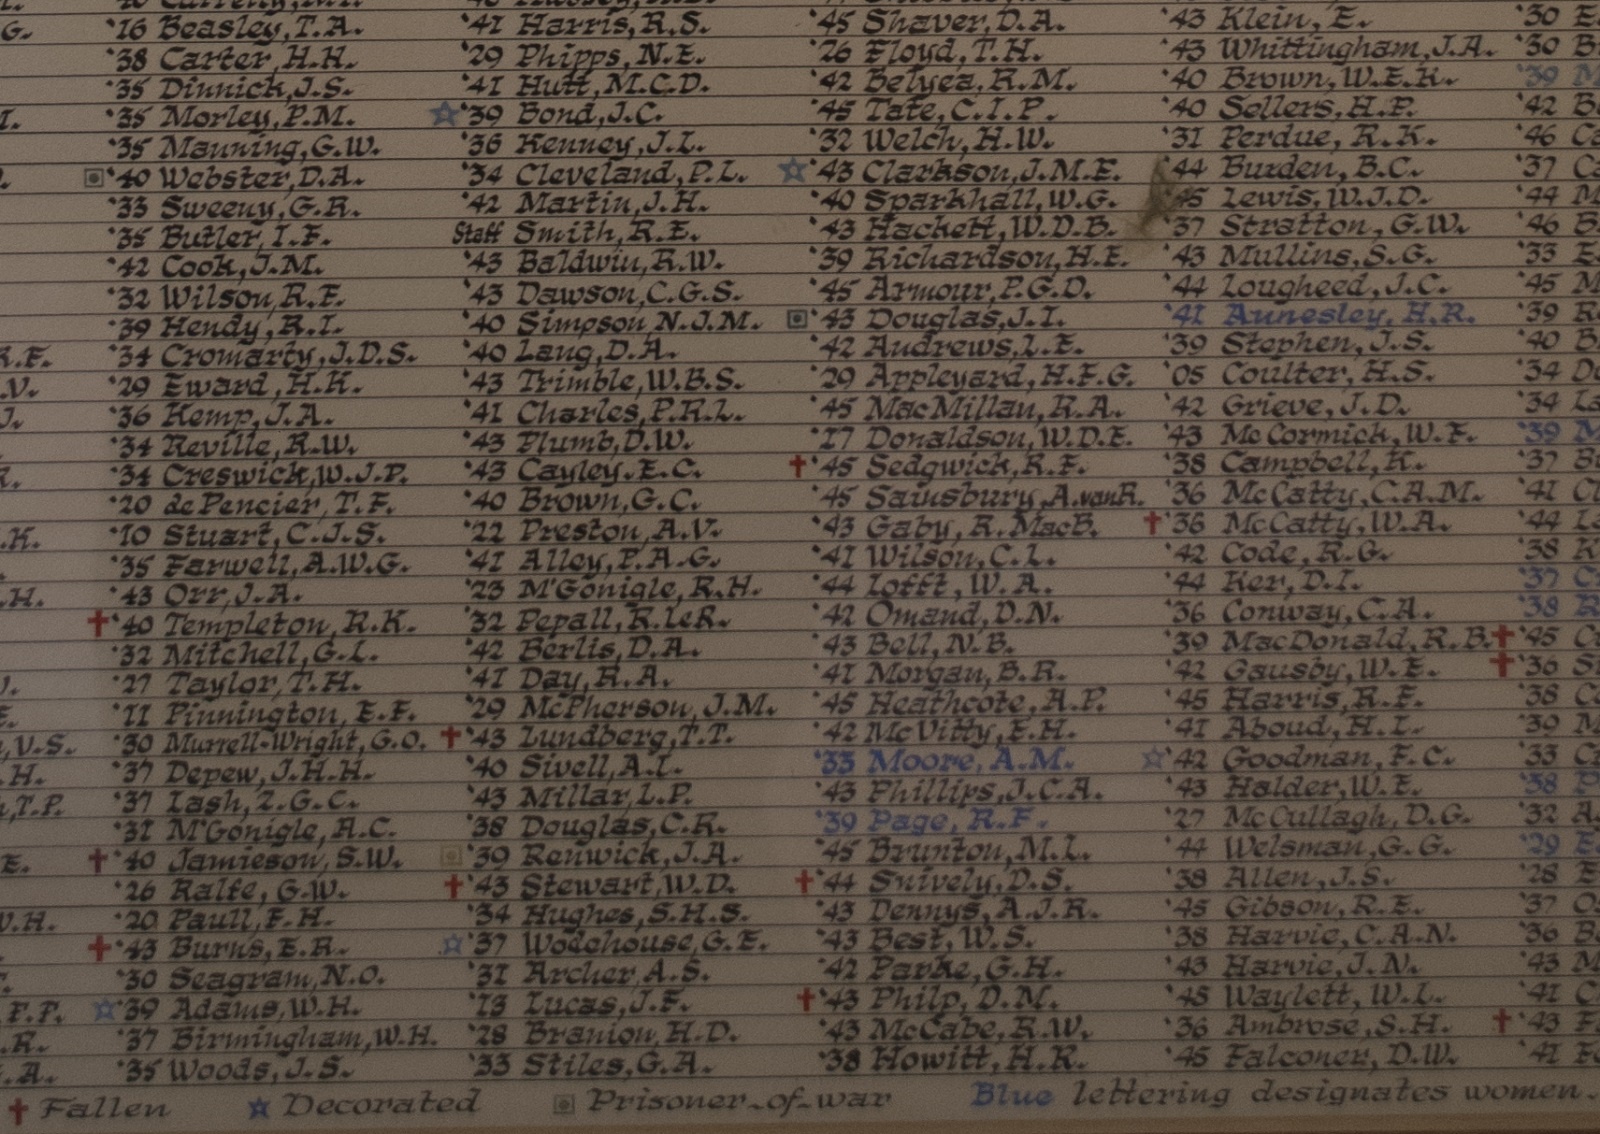 G. '16 Beasley, T.A. '41 Harris, R.S. '45 Shaver, D.A. '43 Klein, E. '30 E
'38 Carter, H.H. '29 Phipps, N.E. '26 Floyd, T.H. '43 Whittingham, J.A. '30 B
'35 Dinnick, J.S. '41 Hutt, M.C.D. '42 Belyea, R.M. '40 Brown, W.E.K. '39 M
'35 Morley, P.M. ☆ '39 Bond, J.C. '45 Tate, C.I.P. '40 Sellers, H.P. '42 B
'35 Manning, G.W. '36 Kenney, J.L. '32 Welch, H.W. '31 Perdue, R.K. '46 Ca
'40 Webster, D.A. '34 Cleveland, P.L. ☆ '43 Clarkson, J.M.E. '44 Burden, B.C. '37 Ca
'33 Sweeny, G.R. '42 Martin, J.H. '40 Sparkhall, W.G. '45 Lewis, W.J.D. '44 M
'35 Butler, I.F. Staff Smith, R.E. '43 Hackett, W.D.B. '37 Stratton, G.W. '46 B
'42 Cook, J.M. '43 Baldwin, R.W. '39 Richardson, H.E. '43 Mullins, S.G. '33 E
'32 Wilson, R.F. '43 Dawson, C.G.S. '45 Armour, P.G.D. '44 Lougheed, J.C. '45 M
'39 Hendy, R.I. '40 Simpson, N.J.M. '43 Douglas, J.I. '41 Annesley, H.R. '39 R
R.F. '34 Cromarty, J.D.S. '40 Lang, D.A. '42 Andrews, L.E. '39 Stephen, J.S. '40 B
.V. '29 Eward, H.K. '43 Trimble, W.B.S. '29 Appleyard, H.F.G. '05 Coulter, H.S. '34 Do
J. '36 Kemp, J.A. '41 Charles, P.R.L. '45 MacMillan, R.A. '42 Grieve, J.D. '34 La
'34 Reville, R.W. '43 Plumb, D.W. '17 Donaldson, W.D.E. '43 McCormick, W.F. '39 M
R. '34 Creswick, W.J.P. '43 Cayley, E.C. † '45 Sedgwick, R.F. '38 Campbell, K. '37 Bu
'20 dePencier, T.F. '40 Brown, G.C. '45 Sainsbury, A.vanR. '36 McCatty, C.A.M. '41 Cl
.K. '10 Stuart, C.J.S. '22 Preston, A.V. '43 Gaby, R.MacB. † '36 McCatty, W.A. '44 La
'35 Farwell, A.W.G. '41 Alley, P.A.G. '41 Wilson, C.L. '42 Code, R.G. '38 K
.H. '43 Orr, J.A. '23 M'Gonigle, R.H. '44 Lofft, W.A. '44 Ker, D.I. '37 C
† '40 Templeton, R.K. '32 Pepall, R.LeR. '42 Omand, D.N. '36 Conway, C.A. '38 R
'32 Mitchell, G.L. '42 Berlis, D.A. '43 Bell, N.B. '39 MacDonald, R.B. † '45 C
'27 Taylor, T.H. '41 Day, R.A. '41 Morgan, B.R. '42 Gausby, W.E. † '36 S
'11 Pinnington, E.F. '29 McPherson, J.M. '45 Heathcote, A.P. '45 Harris, R.F. '38 C
V.S. '30 Murrell-Wright, G.O. † '43 Lundberg, T.T. '42 McVitty, E.H. '41 Aboud, H.L. '39 M
.H. '37 Depew, J.H.H. '40 Sivell, A.L. '33 Moore, A.M. ☆ '42 Goodman, F.C. '33 Cr
T.P. '37 Lash, Z.G.C. '43 Millar, L.P. '43 Phillips, J.C.A. '43 Halder, W.E. '38 P
'31 M'Gonigle, A.C. '38 Douglas, C.R. '39 Page, R.F. '27 McCullagh, D.G. '32 A
E. † '40 Jamieson, S.W. '39 Renwick, J.A. '45 Brunton, M.L. '44 Welsman, G.G. '29 E
'26 Ralfe, G.W. † '43 Stewart, W.D. † '44 Snively, D.S. '38 Allen, J.S. '28 E
W.H. '20 Paull, F.H. '34 Hughes, S.H.S. '43 Dennys, A.J.R. '45 Gibson, R.E. '37 Os
† '43 Burns, E.R. ☆ '37 Wodehouse, G.E. '43 Best, W.S. '38 Harvie, C.A.N. '36 Be
'30 Seagram, N.O. '31 Archer, A.S. '42 Parke, G.H. '43 Harvie, J.N. '43 M
P.P. ☆ '39 Adams, W.H. '13 Lucas, J.F. † '43 Philp, D.M. '45 Waylett, W.L. '41 C
.R. '37 Birmingham, W.H. '28 Branion, H.D. '43 McCabe, R.W. '36 Ambrose, S.H. † '43 F
.A. '35 Woods, J.S. '33 Stiles, G.A. '38 Howitt, H.R. '45 Falconer, D.W. '41 Fo
† Fallen ☆ Decorated Prisoner-of-war Blue lettering designates women.